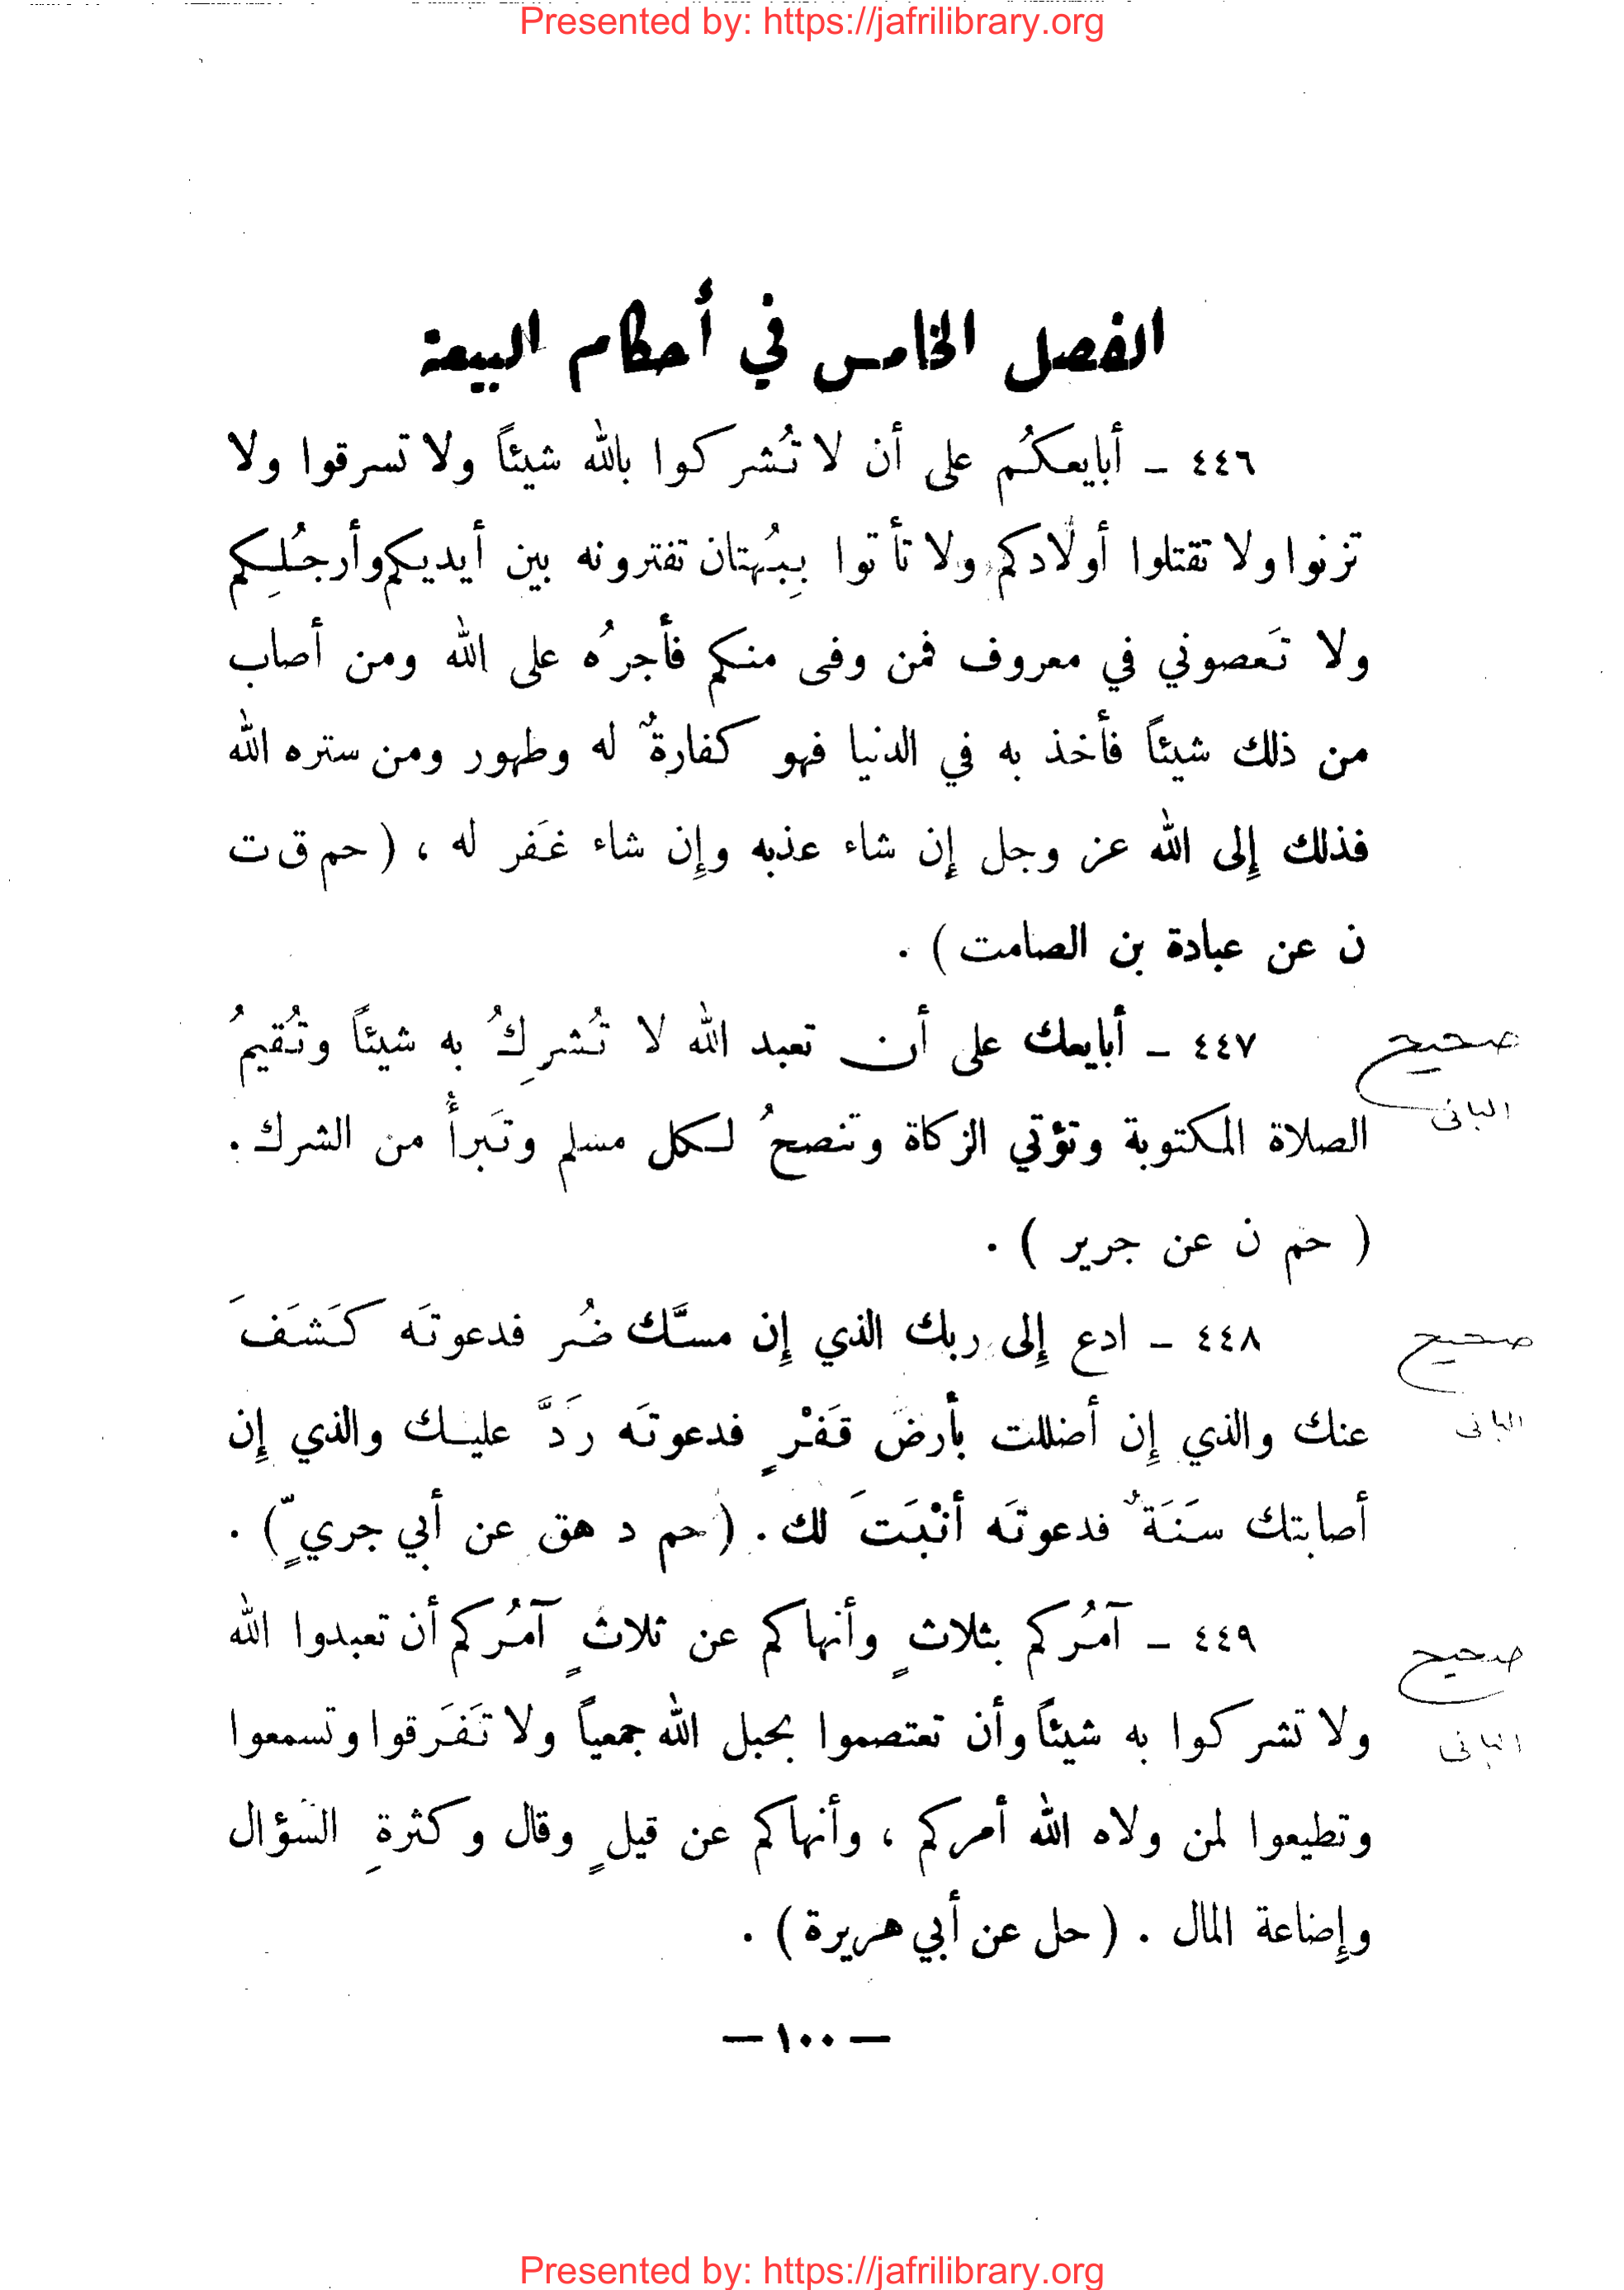 Presented by: https://jafrilibrary.org
الفصل الخامس في أحكام البيعة
٤٤٦ ـ أبايعكُم على أن لا تُشركوا بالله شيئاً ولا تسرقوا ولا
تزنوا ولا تقتلوا أولادكم ولا تأتوا بِبُهتان تفترونه بين أيديكم وأرجُلِكم
ولا تَعصوني في معروف فمن وفى منكم فأجرُه على الله ومن أصاب
من ذلك شيئاً فأخذ به في الدنيا فهو كفارةٌ له وطهور ومن ستره الله
فذلك إلى الله عز وجل إن شاء عذبه وإن شاء غَفر له ، ( حم ق ت
ن عن عبادة بن الصامت ) .
٤٤٧ ـ أبايعك على أن تعبد الله لا تُشرِكُ به شيئاً وتُقيمُ
صحيح
الصلاة المكتوبة وتؤتي الزكاة وتنصحُ لكل مسلم وتَبرأُ من الشرك .
البانى
( حم ن عن جرير ) .
٤٤٨ ـ ادع إلى ربك الذي إن مسَّك ضُر فدعوتَه كَشَفَ
صحيح
عنك والذي إن أضللت بأرض قَفْرٍ فدعوتَه رَدَّ عليك والذي إن
البانى
أصابتك سَنَةٌ فدعوتَه أنْبَتَ لك . ( حم د هق عن أبي جريٍّ ) .
٤٤٩ ـ آمُركم بثلاثٍ وأنهاكم عن ثلاثٍ آمُركم أن تعبدوا الله
صحيح
ولا تشركوا به شيئاً وأن تعتصموا بحبل الله جمعياً ولا تَفَرقوا وتسمعوا
البانى
وتطيعوا لمن ولاه الله أمركم ، وأنهاكم عن قيلٍ وقال وكثرةِ السؤال
وإضاعة المال . ( حل عن أبي هريرة ) .
— ١٠٠ —
Presented by: https://jafrilibrary.org